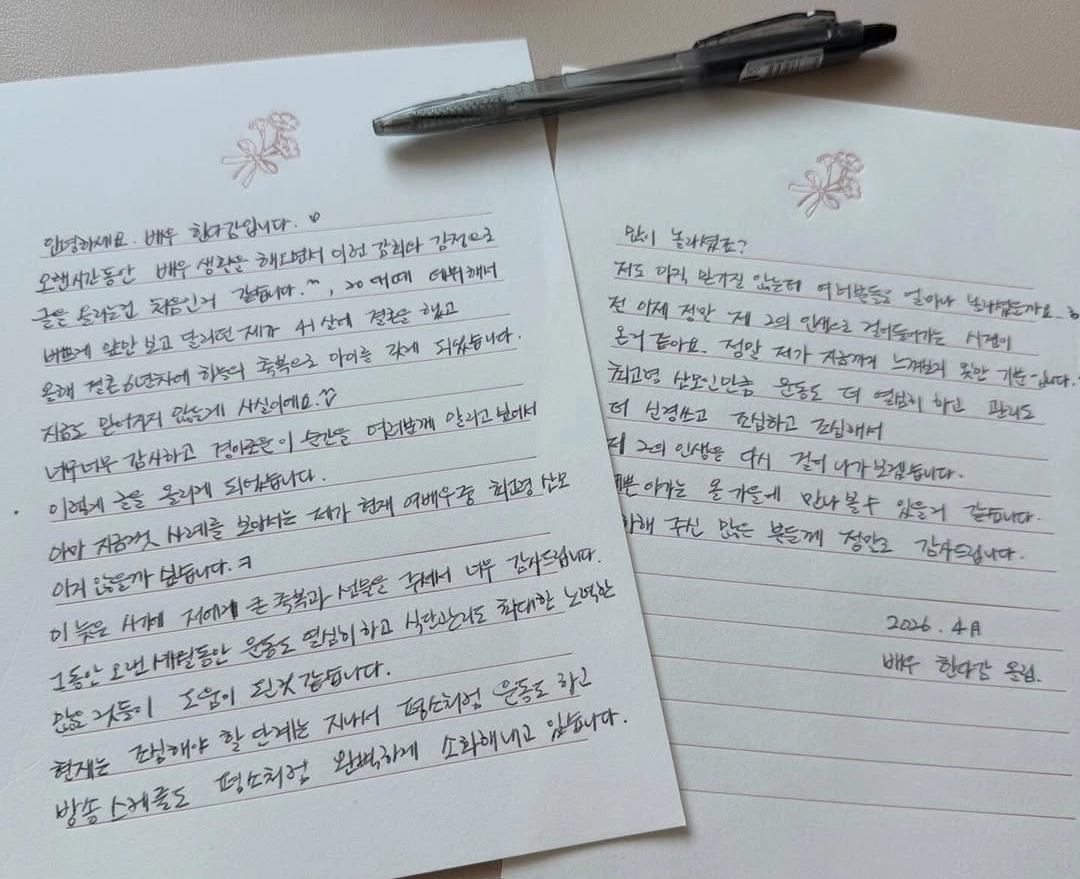 안녕하세요. 배우 한다감입니다. ♡
오랜시간동안 배우 생활을 해오면서 이런 감회와 감정으로
글을 올리는건 처음인거 같습니다.^^, 20대때 데뷔해서
바쁘게 앞만 보고 달리던 제가 41살에 결혼을 했고
올해 결혼 6년차에 하늘의 축복으로 아이를 갖게 되었습니다.
지금도 믿어지지 않는게 사실이에요.
너무너무 감사하고 경이로운 이 순간을 여러분께 알리고 싶어서
이렇게 글을 올리게 되었습니다.
아마 지금껏 사례를 보아서는 제가 현재 여배우중 최고령 산모
아지 않을까 싶습니다.ㅋ
이 늦은 시기에 저에게 큰 축복과 선물을 주셔서 너무 감사드립니다.
그동안 오랜세월동안 운동도 열심히 하고 식단관리도 최대한 노력한
많은 것들이 도움이 된것 같습니다.
현재는 조심해야 할 단계는 지나서 평소처럼 운동도 하고
방송 스케줄도 평소처럼 완벽하게 소화해내고 있습니다.
많이 놀라셨죠?
저도 아직 믿기질 않는데 여러분들은 얼마나 놀라셨을까요.
전 이제 정말 제 2의 인생으로 걸어들어가는 시점이
온거 같아요. 정말 제가 지금까지 느껴보지 못한 기쁨입니다.
최고령 산모인만큼 운동도 더 열심히 하고 관리도
더 신경쓰고 조심하고 조심해서
제 2의 인생을 다시 걸어 나가보겠습니다.
아가는 올 가을에 만나 볼수 있을거 같습니다.
주신 많은 분들께 정말로 감사드립니다.
2026. 4月
배우 한다감 올림.